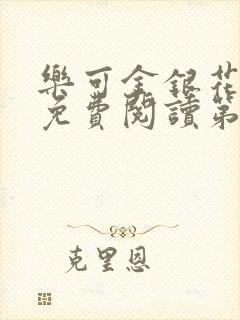 樂可金銀花
免費閱讀第
克里恩